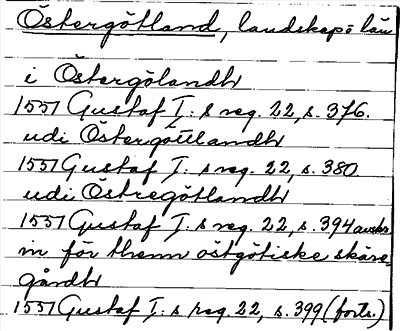 Östergötland, landskap o län
i Östergölandh
1551 Gustaf I:s reg. 22, s. 376.
udi Östergöttlandh
1551 Gustaf I:s reg. 22, s. 380
udi Östregötlandh
1551 Gustaf I:s reg. 22, s. 394 avskr
in för thenn östgötiske skäre-
gårdh
1551 Gustaf I:s reg. 22, s. 399 (forts.)